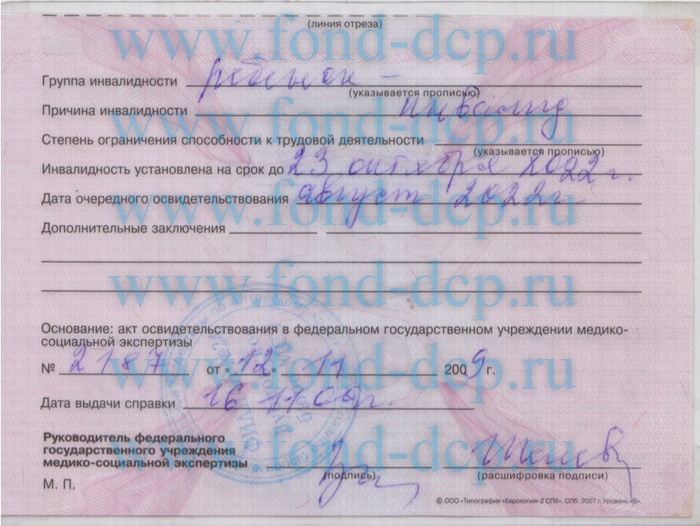 (линия отреза)
www.fond-dcp.ru
Группа инвалидности ребенок -
(указывается прописью)
Причина инвалидности инвалид
www.fond-dcp.ru
Степень ограничения способности к трудовой деятельности
(указывается прописью)
Инвалидность установлена на срок до 23 октября 2022 г.
Дата очередного освидетельствования август 2022г.
www.fond-dcp.ru
Дополнительные заключения
www.fond-dcp.ru
Основание: акт освидетельствования в федеральном государственном учреждении медико-
социальной экспертизы
№ 2187 от «12» 11 2009 г.
www.fond-dcp.ru
Дата выдачи справки 16 11 09г.
Руководитель федерального
государственного учреждения
медико-социальной экспертизы
www.fond-dcp.ru
(подпись) (расшифровка подписи)
М. П.
© ООО «Типография «Еврокопия-2 СПб». СПб. 2007 г. Уровень «В».